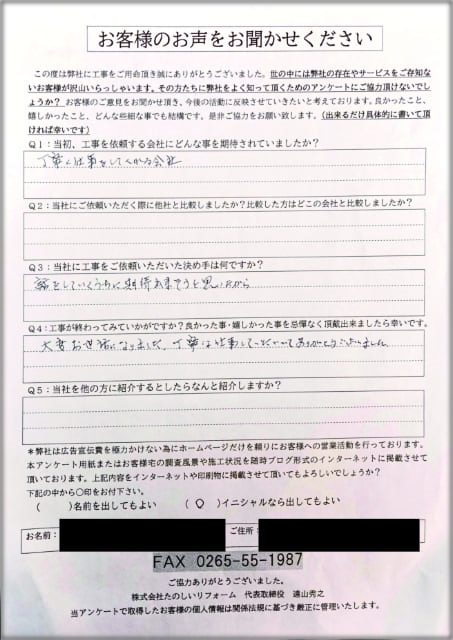 お客様のお声をお聞かせください
この度は弊社に工事をご用命頂き誠にありがとうございました。世の中には弊社の存在やサービスをご存知な
いお客様が沢山いらっしゃいます。その方たちに弊社をよく知って頂くためのアンケートにご協力頂けないでし
ょうか？お客様のご意見をお聞かせ頂き、今後の活動に反映させていきたいと考えております。良かったこと、
嬉しかったこと、どんな些細な事でも結構です。是非ご協力をお願い致します。(出来るだけ具体的に書いて頂
ければ幸いです)
Q1：当初、工事を依頼する会社にどんな事を期待されていましたか？
丁寧な仕事をしてくれる会社
Q2：当社にご依頼いただく際に他社と比較しましたか？比較した方はどこの会社と比較しましたか？
Q3：当社に工事をご依頼いただいた決め手は何ですか？
話をしていくうちに期待出来そうと思いから
Q4：工事が終わってみていかがですか？良かった事・嬉しかった事を忌憚なく頂戴出来ましたら幸いです。
大変お世話になりました。丁寧な仕事していただいてありがとうございました
Q5：当社を他の方に紹介するとしたらなんと紹介しますか？
＊弊社は広告宣伝費を極力かけない為にホームページだけを頼りにお客様への営業活動を行っております。
本アンケート用紙またはお客様宅の調査風景や施工状況を随時ブログ形式のインターネットに掲載させて
頂いております。上記内容をインターネットや印刷物に掲載させて頂いてもよろしいでしょうか？
下記の中から〇印をお付下さい。
( )名前を出してもよい (〇)イニシャルなら出してもよい
お名前： ご住所：
FAX 0265-55-1987
ご協力ありがとうございました。
株式会社たのしいリフォーム 代表取締役 遠山秀之
当アンケートで取得したお客様の個人情報は関係法規に基づき厳正に管理いたします。